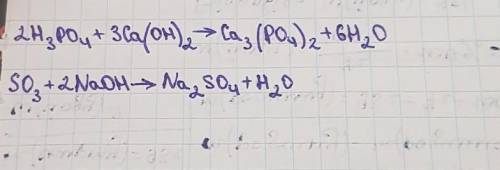 2H₃PO₄ + 3Ca(OH)₂ → Ca₃(PO₄)₂ + 6H₂O
SO₃ + 2NaOH → Na₂SO₄ + H₂O